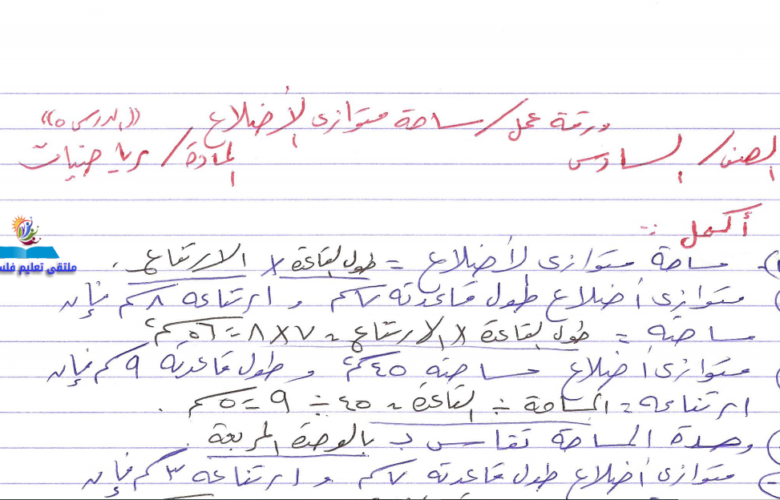 ورقة عمل / مساحة متوازي الأضلاع ((الدرس ٥))
الصف / السادس المادة / رياضيات
أكمل :-
مساحة متوازي لأضلاع = طول القاعدة × الارتفاع .
متوازي أضلاع طول قاعدته ٧سم و ارتفاعه ٨سم فإن
مساحته = طول القاعدة × الارتفاع = ٧×٨ = ٥٦سم²
متوازي أضلاع مساحته ٤٥سم² و طول قاعدته ٩سم فإن
ارتفاعه = المساحة ÷ القاعدة = ٤٥ ÷ ٩ = ٥سم .
وحدة المساحة تقاس بـ بالوحدة المربعة .
متوازي أضلاع طول قاعدته ٧سم و ارتفاعه ٣سم فإن
ملتقى تعليم